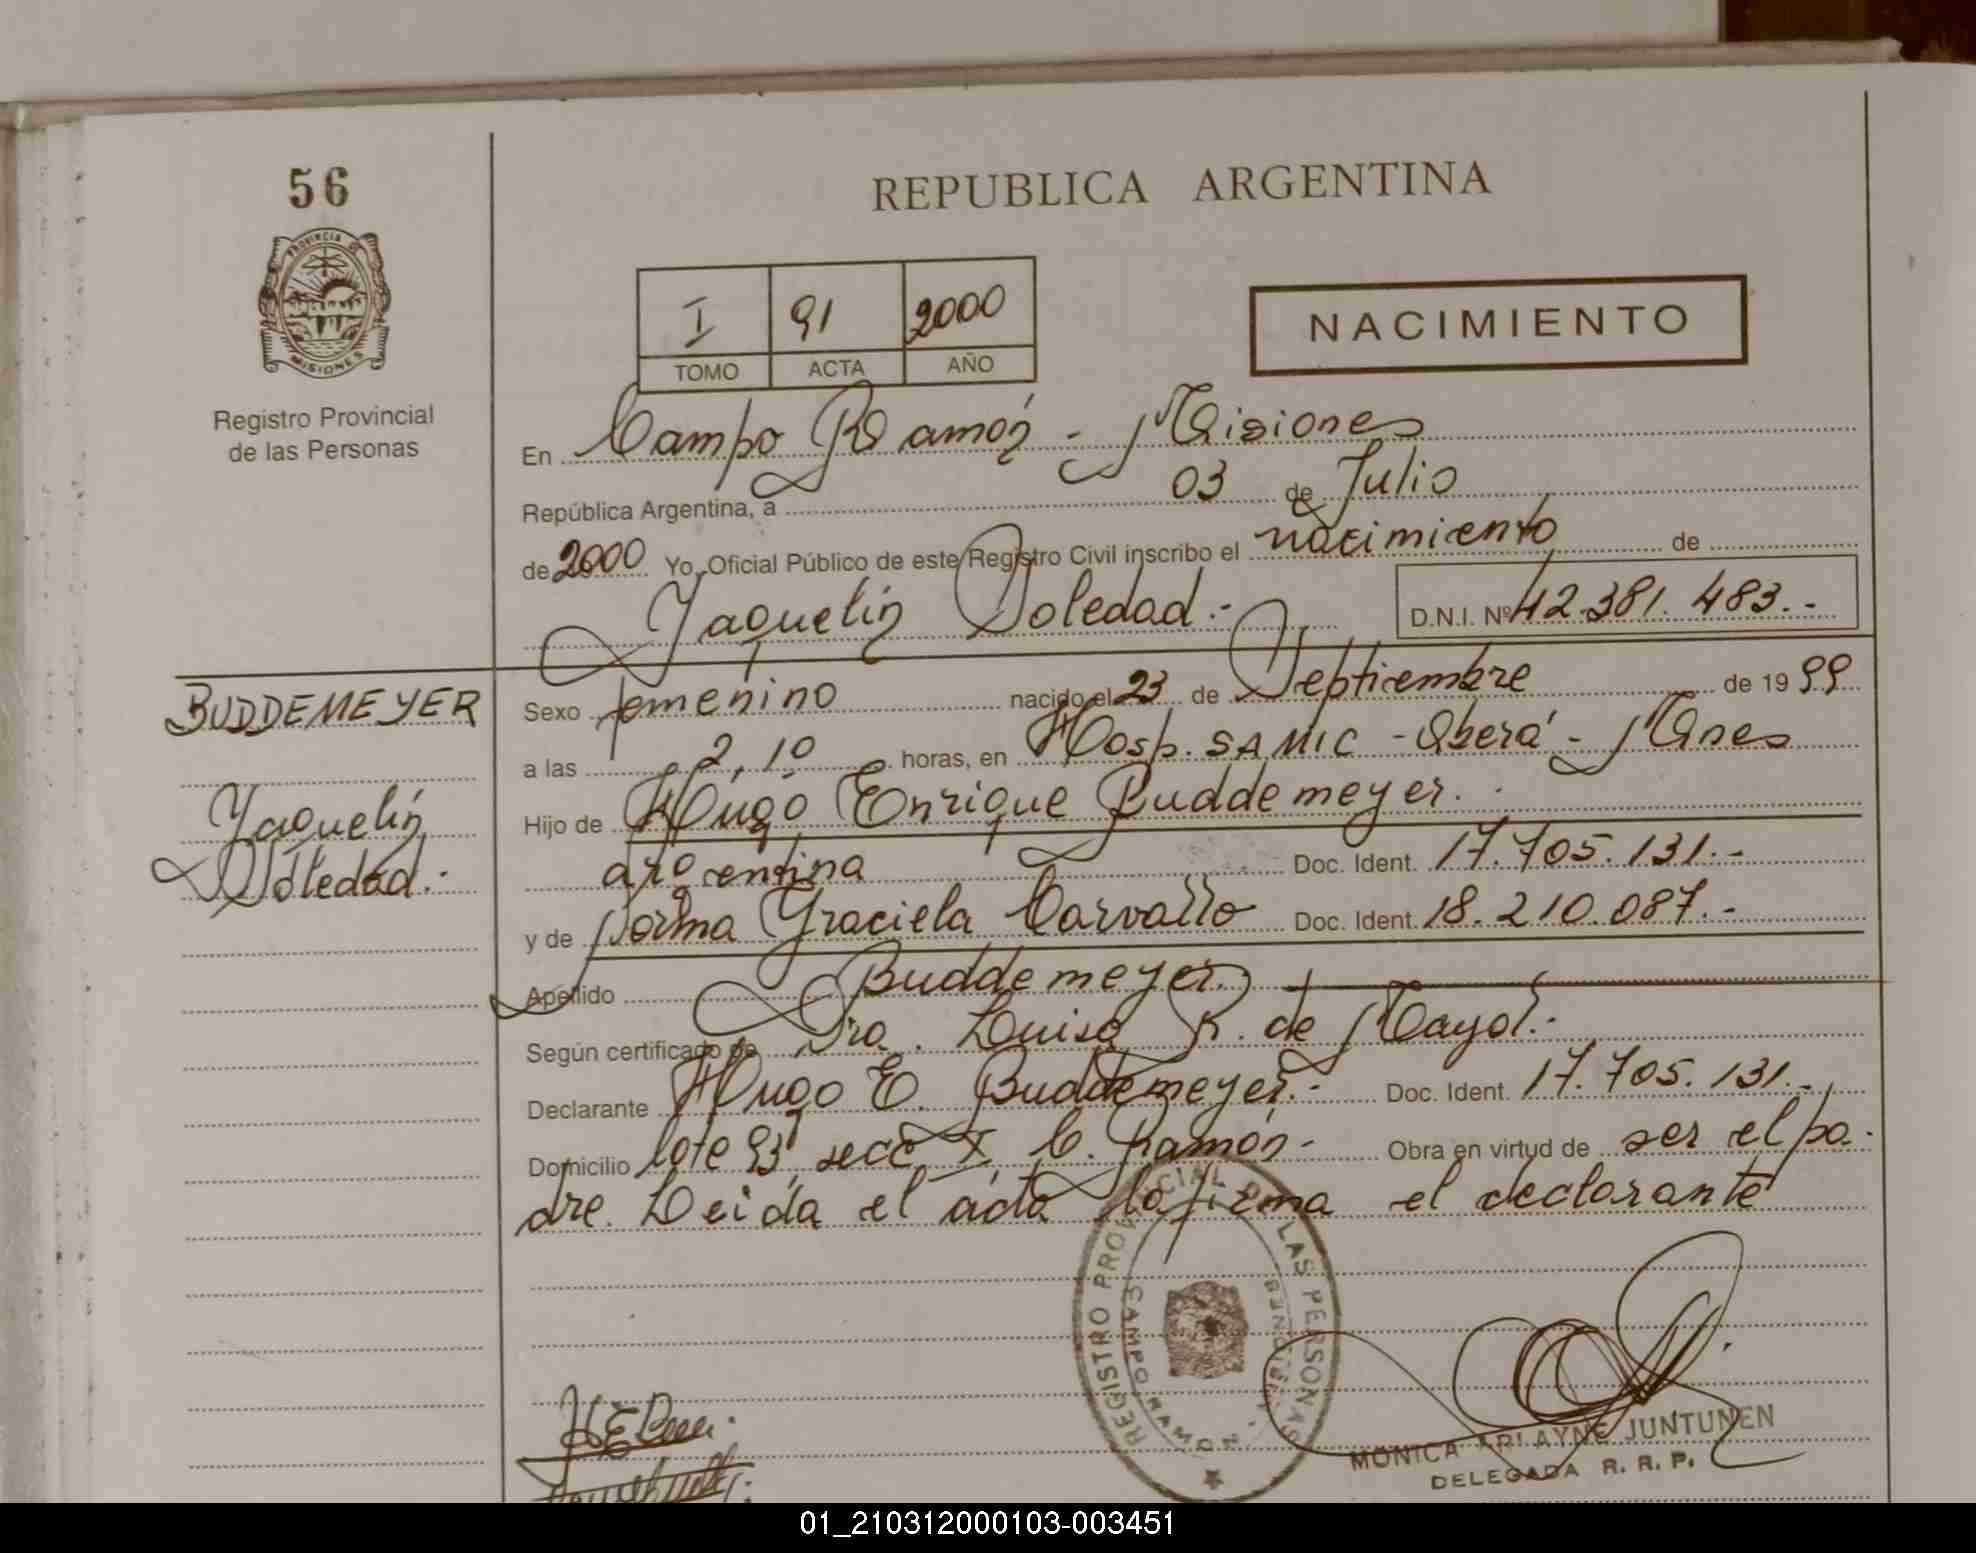 56
PROVINCIA DE
MISIONES
Registro Provincial
de las Personas
REPUBLICA ARGENTINA
I 91 2000
TOMO ACTA AÑO
NACIMIENTO
En Campo Ramón - Misiones
República Argentina, a 03 de Julio
de 2000 Yo, Oficial Público de este Registro Civil inscribo el nacimiento de
Yaquelín Soledad.- D.N.I. Nº 42.381.483.-
BUDDEMEYER
Yaquelín
Soledad.-
Sexo femenino nacido el 23 de Septiembre de 1999
a las 2,10 horas, en Hosp. SAMIC - Oberá - Mnes
Hijo de Hugo Enrique Buddemeyer.
argentina Doc. Ident. 17.705.131.-
y de Norma Graciela Carvallo Doc. Ident. 18.210.087.-
Apellido Buddemeyer.
Según certificado de Dra. Luisa R. de Mayol.-
Declarante Hugo E. Buddemeyer.- Doc. Ident. 17.705.131.-
Domicilio lote 93 secc X C. Ramón- Obra en virtud de ser el pa-
dre. Leida el acta la firma el declarante
REGISTRO PROVINCIAL DE LAS PERSONAS
CAMPO RAMON
MISIONES
MONICA ARLAYNE JUNTUNEN
DELEGADA R. R. P.
01_210312000103-003451